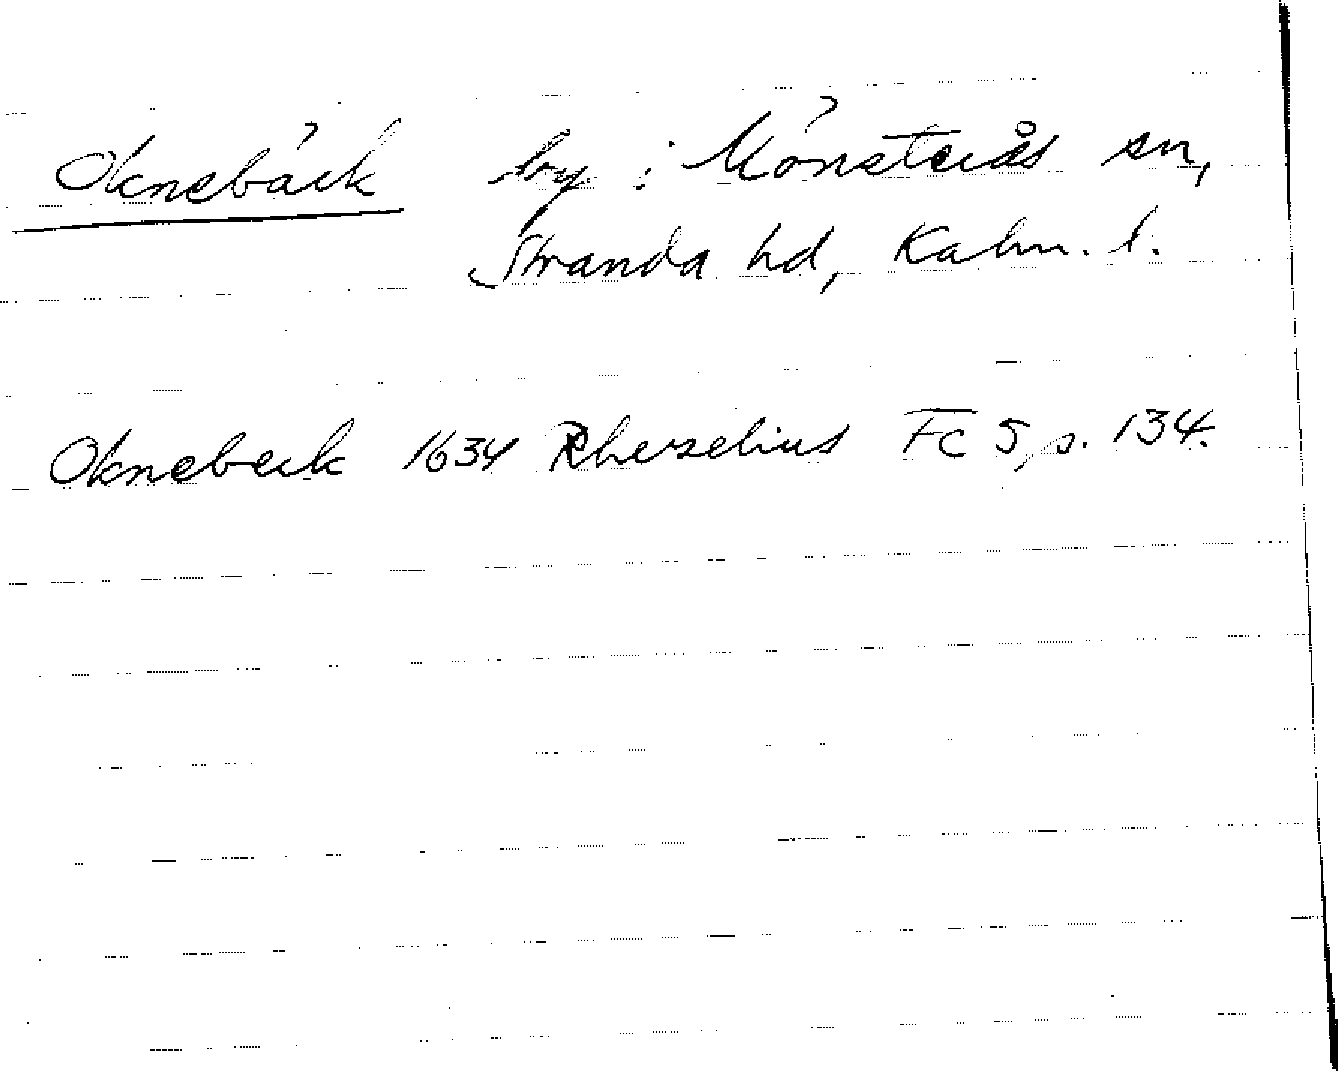 Oknebäck by i Mönsterås sn,
Stranda hd, Kalm. l.
Oknebeck 1634 Rhezelius Fc 5, s. 134.